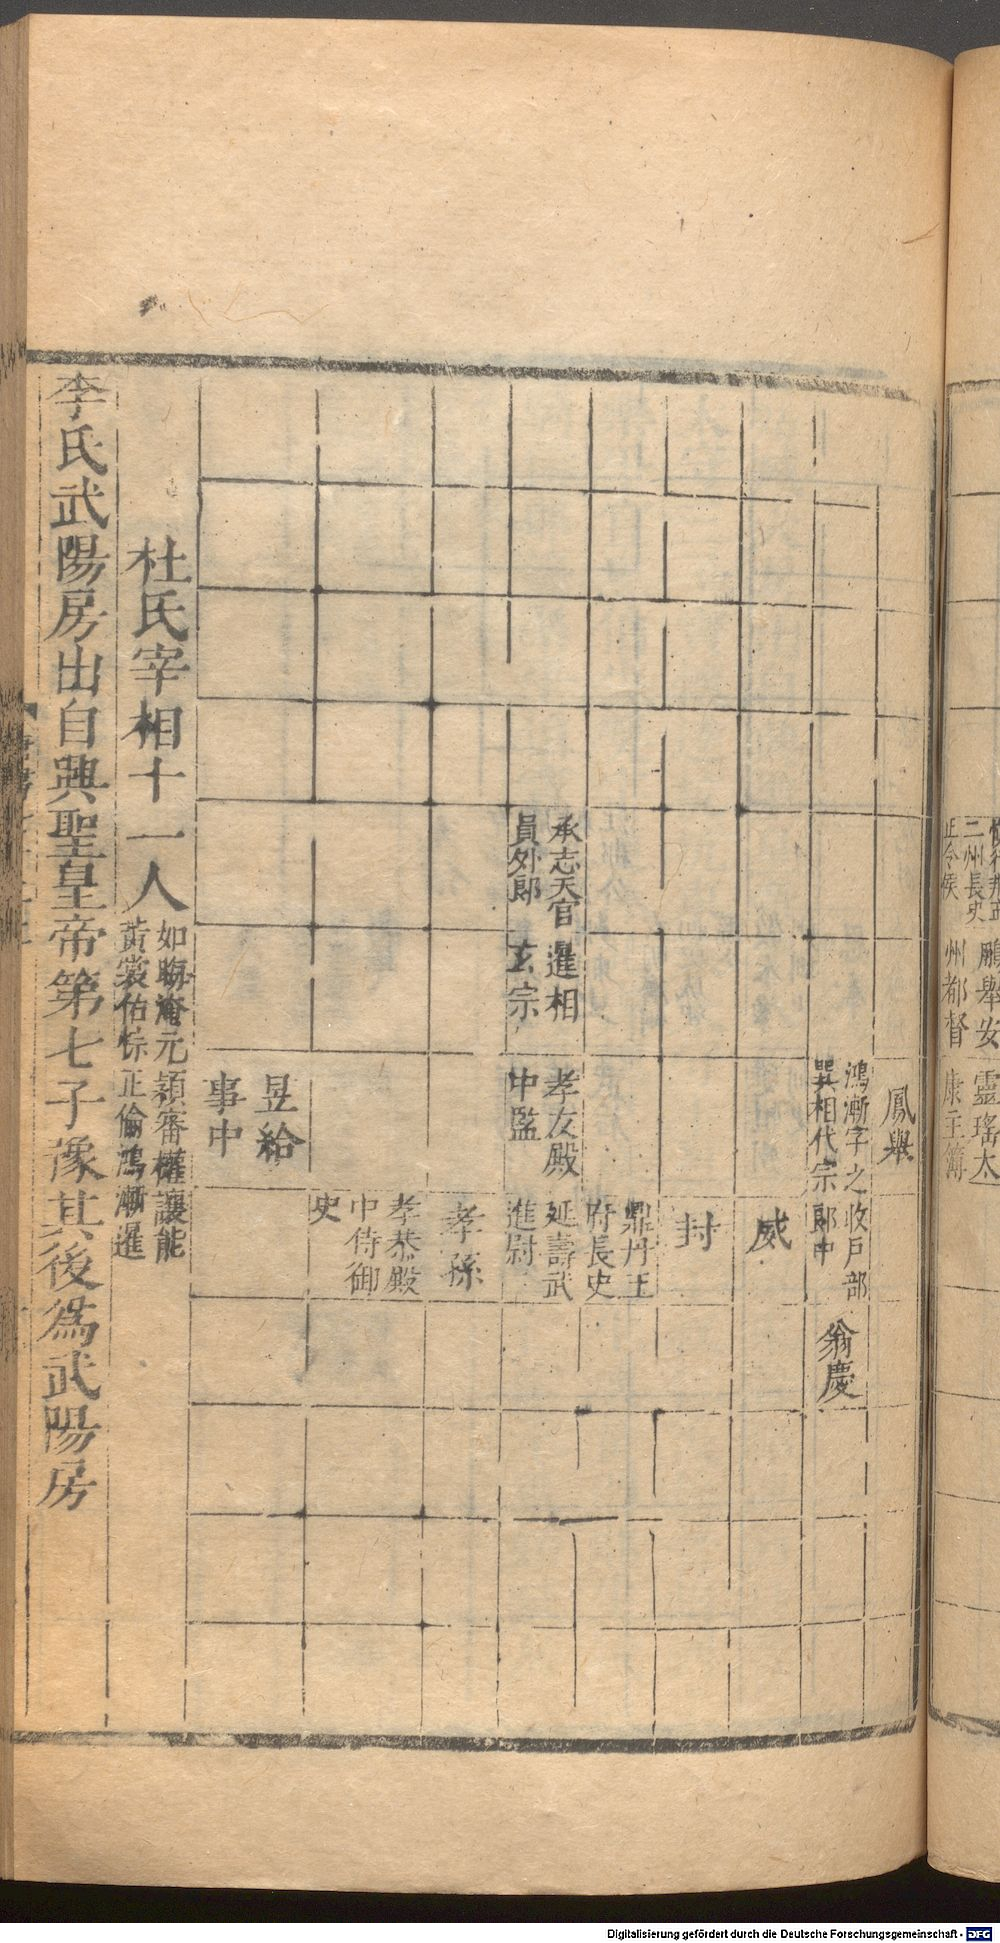 鳳舉
鴻漸字之
巽相代宗
收戶部
郎中
翁慶
威
封
鼎丹王
府長史
承志天官
員外郎
暹相
玄宗
孝友殿
中監
延壽武
進尉
孝孫
孝恭殿
中侍御
史
昱給
事中
杜氏宰相十一人
如晦淹元穎審權讓能
黃裳佑悰正倫鴻漸暹
李氏武陽房出自興聖皇帝第七子豫其後爲武陽房
二州長史
鵬舉安
州都督
靈瑤太
康主簿
Digitalisierung gefördert durch die Deutsche Forschungsgemeinschaft - DFG